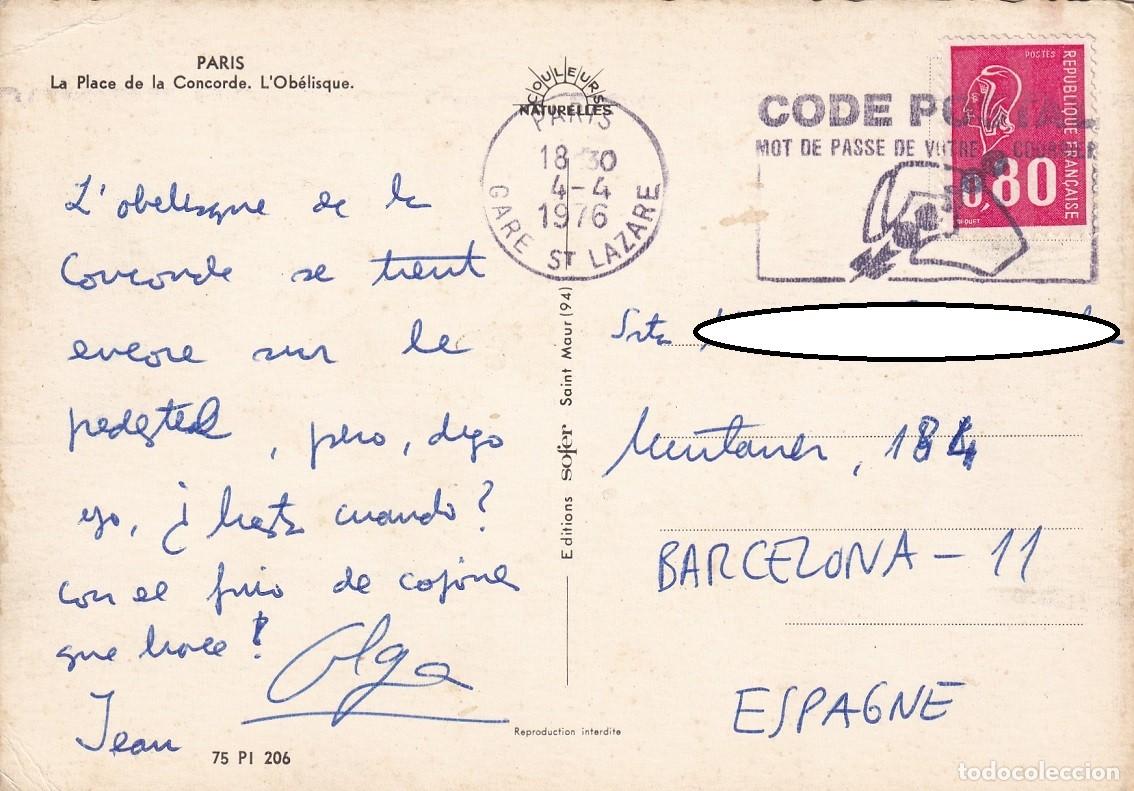 PARIS
La Place de la Concorde. L'Obélisque.
COULEURS
NATURELLES
PARIS
18 30
4-4
1976
GARE ST LAZARE
CODE POSTAL
MOT DE PASSE DE VOTRE COURRIER
POSTES
REPUBLIQUE FRANÇAISE
0,80
L'obelisque de la
Concorde se trent
encore sur le
pedestal, pero, digo
yo, ¿hasta cuando?
con el frio de cojones
que hace!
Olga
Jean
Srta
Muntaner, 184
BARCELONA - 11
ESPAGNE
Editions sofer Saint Maur (94)
Reproduction interdite
75 PI 206
todocoleccion